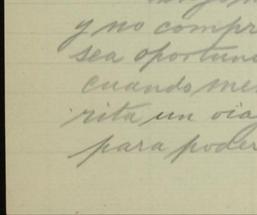 y no compr
sea oportuno
cuando me
rita un via
para poder